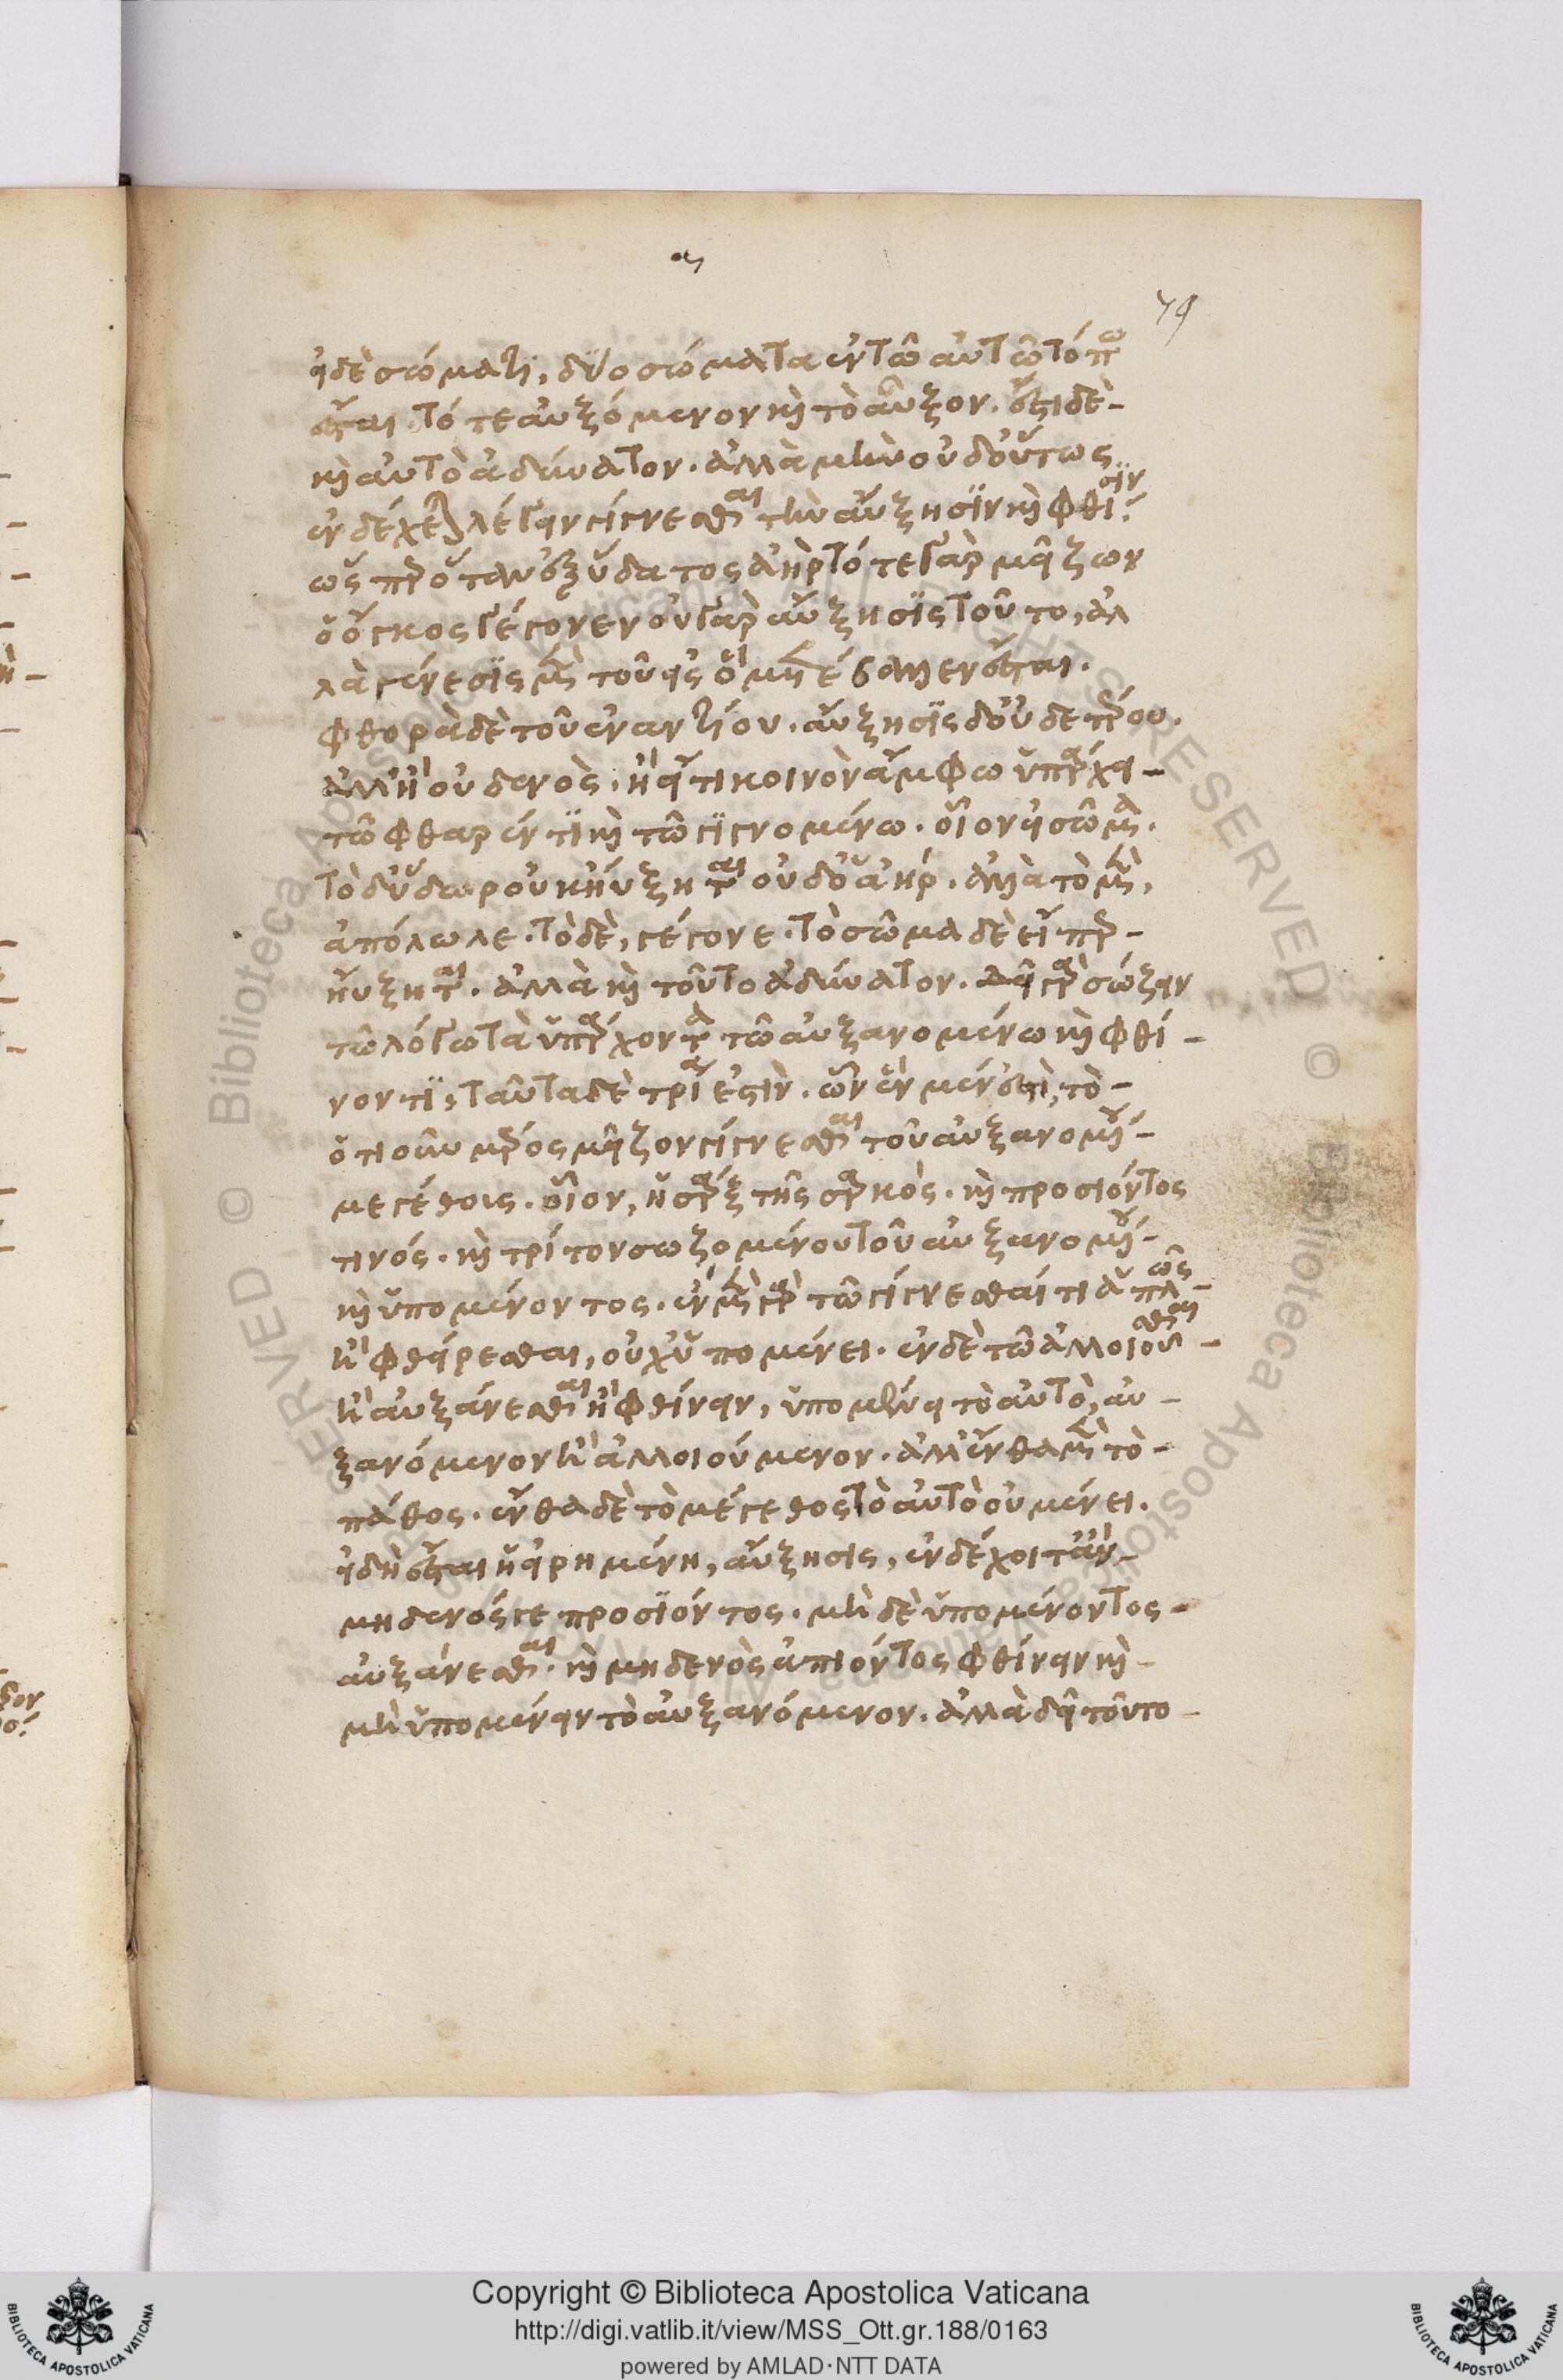 α
79
εἰ δὲ σώματι, δύο σώματα ἐν τῶ αὐτῶ τόπω
ἔσται. τό τε αὐξόμενον καὶ τὸ αὖξον. ἔστι δὲ
καὶ αὐτὸ ἀδύνατον. ἀλλὰ μὴν οὐδ' οὕτως
ἐνδέχεται λέγειν γίγνεσθαι τὴν αὔξησϊν καὶ φθίσϊν
ὥσπερ ὅταν ἐξ ὕδατος ἀήρ τότε γὰρ μείζων
ὁ ὄγκος γέγονεν οὐ γὰρ αὔξησϊς τοῦτο, ἀλ
λὰ γένεσϊς μὲν τοῦ εἰς ὃ μετέβαλλεν ἔσται.
φθορὰ δὲ τοῦ ἐναντίου. αὔξησϊς δ' οὐδετέρου.
ἀλλ' ἢ οὐδενὸς. ἢ εἴ τι κοινὸν ἄμφω ὑπάρχει
τῶ φθαρέντϊ καὶ τῶ γϊγνομένω. οἷον εἰ σῶμα.
τὸ δ' ὕδωρ οὐκ ηὔξηται οὐδ' ὁ ἀήρ. ἀλλὰ τὸ μὲν,
ἀπόλωλε. τὸ δὲ, γέγονε. τὸ σῶμα δὲ εἴπερ
ηὔξηται. ἀλλὰ καὶ τοῦτο ἀδύνατον. δεῖ γὰρ σώζειν
τῶ λόγω τὰ ὑπάρχοντα τῶ αὐξανομένω καὶ φθί
νοντϊ, ταῦτα δὲ τρία ἐστὶν. ὧν ἓν μέν ἐστι, τὸ
ὁτιοῦν μέρος μεῖζον γίγνεσθαι τοῦ αὐξανομένου
μεγέθους. οἷον, ἡ σὰρξ τῆς σαρκὸς. καὶ προσιόντος
τινός. καὶ τρίτον σωζομένου τοῦ αὐξανομένου
καὶ ὑπομένοντος. ἐν μὲν γὰρ τῶ γίγνεσθαί τι ἁπλῶς
ἢ φθείρεσθαι, οὐχ ὑπομένει. ἐν δὲ τῶ ἀλλοιοῦσθαι
ἢ αὐξάνεσθαι ἢ φθίνειν, ὑπομένει τὸ αὐτὸ, αὐ
ξανόμενον ἢ ἀλλοιούμενον. ἀλλ' ἔνθα μὲν τὸ
πάθος. ἔνθα δὲ τὸ μέγεθος τὸ αὐτὸ οὐ μένει.
εἰ δὴ ἔσται ἡ εἰρημένη, αὔξησις, ἐνδέχοιτ' ἂν
μηδενός γε προσϊόντος. μὴ δὲ ὑπομένοντος
αὐξάνεσθαι. καὶ μηδενὸς ἀπιόντος φθίνειν καὶ
μὴ ὑπομένειν τὸ αὐξανόμενον. ἀλλὰ δεῖ τοῦτο
Copyright © Biblioteca Apostolica Vaticana
http://digi.vatlib.it/view/MSS_Ott.gr.188/0163
powered by AMLAD·NTT DATA